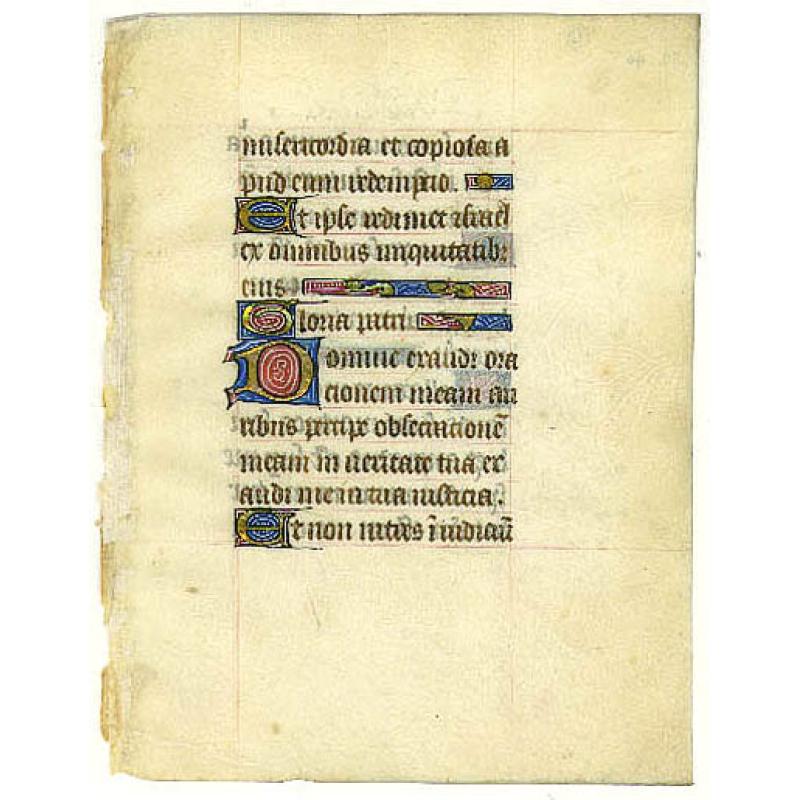 misericordia et copiosa a
pud eum redemptio.
Et ipse redimet israel
ex omnibus iniquitatib
eius
Gloria patri
Domine exaudi ora
cionem meam au
ribus percipe obsecracionē
meam in ueritate tua ex
audi me in tua iusticia.
Et non intres ī iudiciū